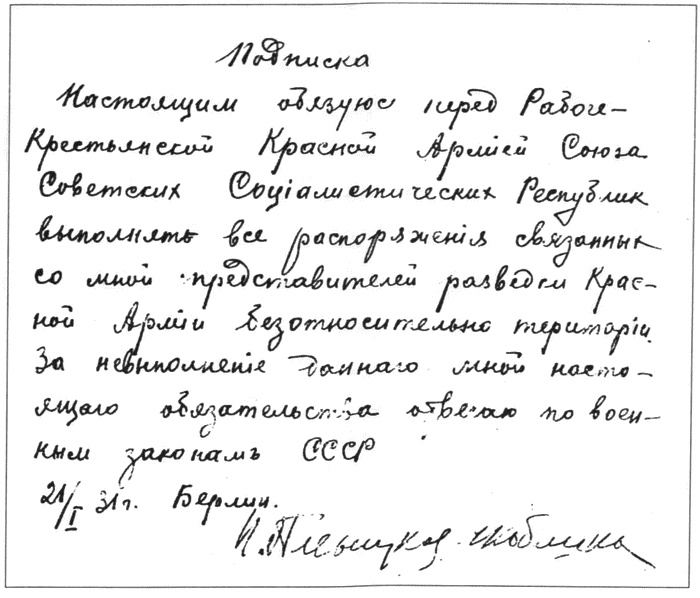 Подписка
Настоящим обязуюс перед Рабоче-
Крестьянской Красной Армiей Союза
Советских Соцiалистических Республик
выполнять все распоряженiя связанных
со мной представителей разведки Крас-
ной Армiи безотносительно територiи.
За невыполненiе даннаго мной насто-
ящаго обязательства отвечаю по воен-
ным законамъ СССР
21/I 31г. Берлин.
Н. Плевицкая-Скоблина